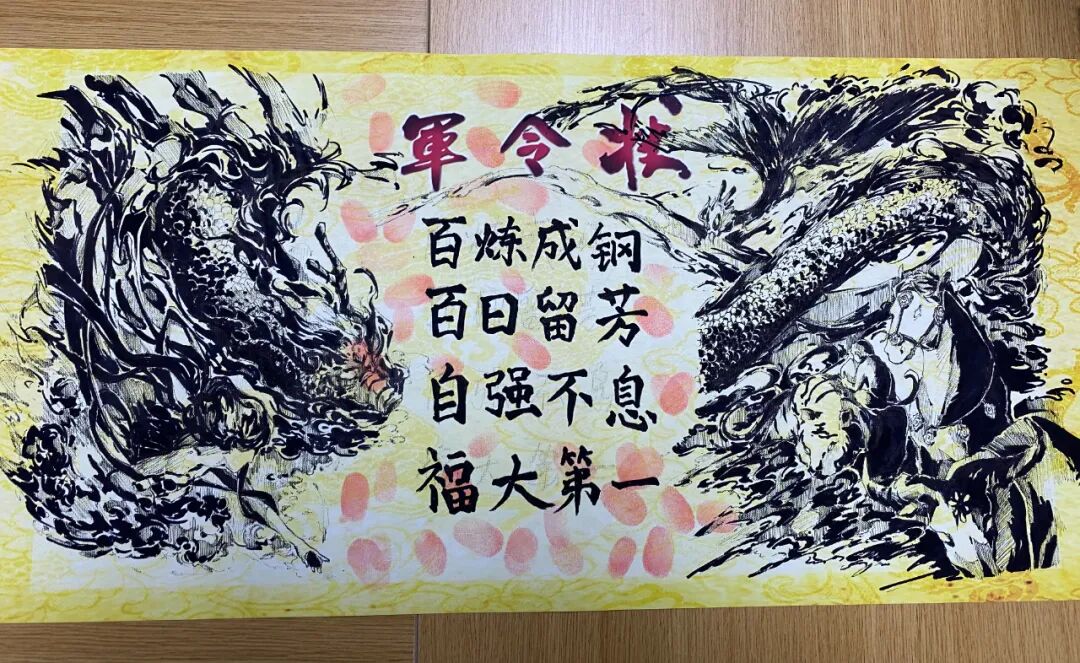 軍令状
百炼成钢
百日留芳
自强不息
福大第一